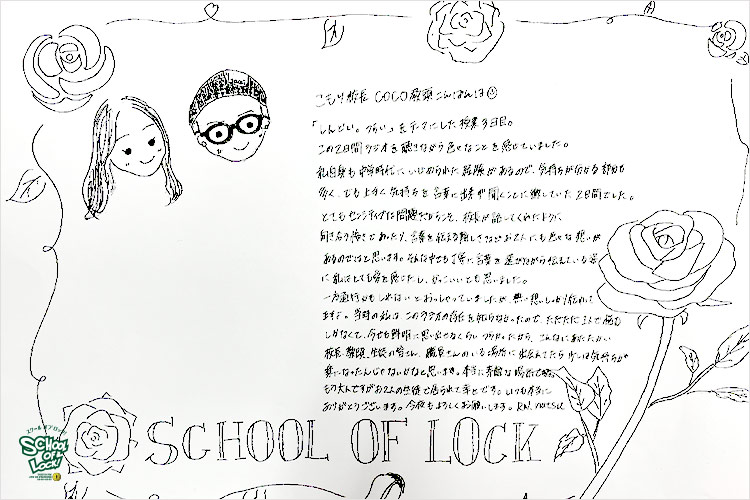 こもり校長 COCO教頭 こんばんは
「しんどい。つらい」をテーマにした授業3日目。
この2日間ラジオを聴きながら色々なことを感じていました。
私自身も中学時代にいじめられた経験があるので、気持ちが分かる部分も
多く、でも上手く気持ちを言葉に出来ず聞くことに徹していた2日間でした。
とてもセンシティブな問題だからこそ、校長が話してくれたように、
向き合う怖さであったり、言葉を伝える難しさなどお二人にも色々な想いが
あるのではと思います。そんな中でも丁寧に言葉を選びながら伝えている姿
に私はとても愛を感じたし、かっこいいとも思いました。
一方通行かもしれないとおっしゃっていましたが、熱い想いしっかり伝わって
ますよ。当時の私は、このラジオの存在を知らなかったので、ただただ1人で悩む
しかなくて、今でも鮮明に思い出せなくらいツラかった。だから、こんなにあたたかい
校長、教頭、生徒の皆さん、職員さんのいる場所に出会えてたら少しは気持ちが
楽になったんじゃないかなと思います。本当に素敵な場所で
もう大人ですがお2人の生徒で居られて幸せです。いつも本当に
ありがとうございます。今夜もよろしくお願いします。 RN. natsu
SCHOOL OF LOCK
スクール オブ ロック
SCHOOL OF LOCK!